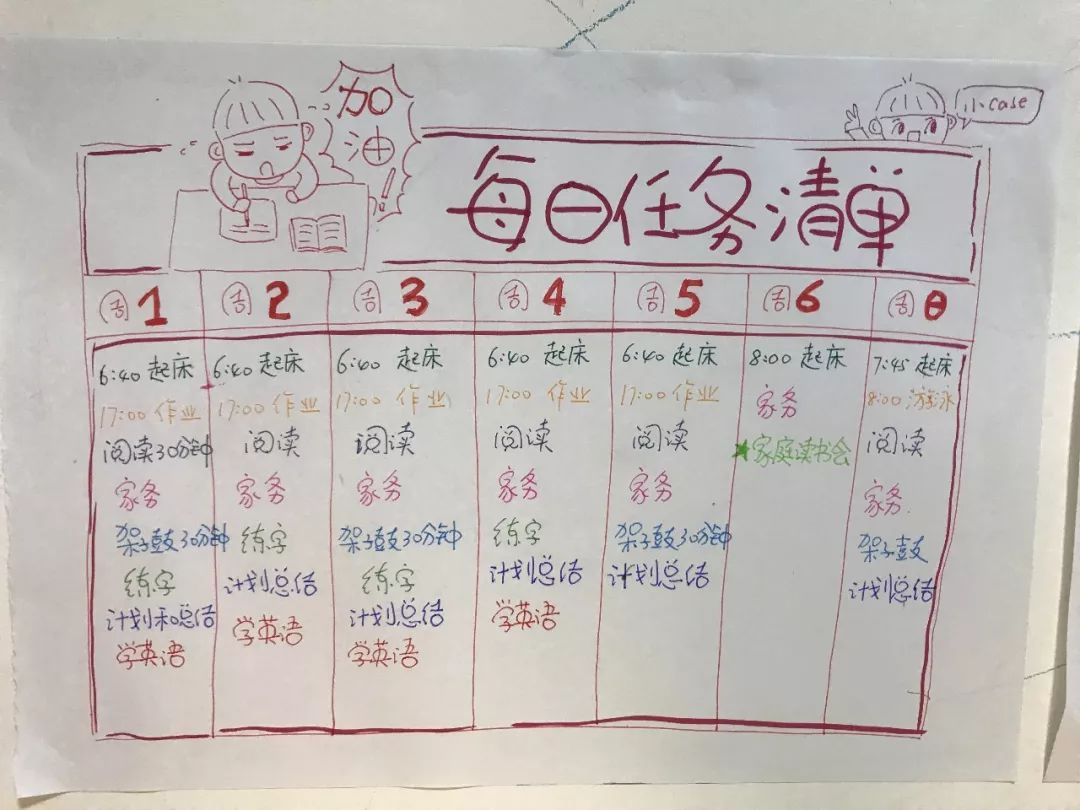 加油!
小case
每日任务清单
周1 周2 周3 周4 周5 周6 周日
6:40 起床
17:00 作业
阅读30分钟
家务
架子鼓30分钟
练字
计划和总结
学英语
6:40 起床
17:00 作业
阅读
家务
练字
计划总结
学英语
6:40 起床
17:00 作业
阅读
家务
架子鼓30分钟
练字
计划总结
学英语
6:40 起床
17:00 作业
阅读
家务
练字
计划总结
学英语
6:40 起床
17:00 作业
阅读
家务
架子鼓30分钟
计划总结
8:00 起床
家务
★家庭读书会
7:45 起床
8:00 游泳
阅读
家务.
架子鼓
计划总结